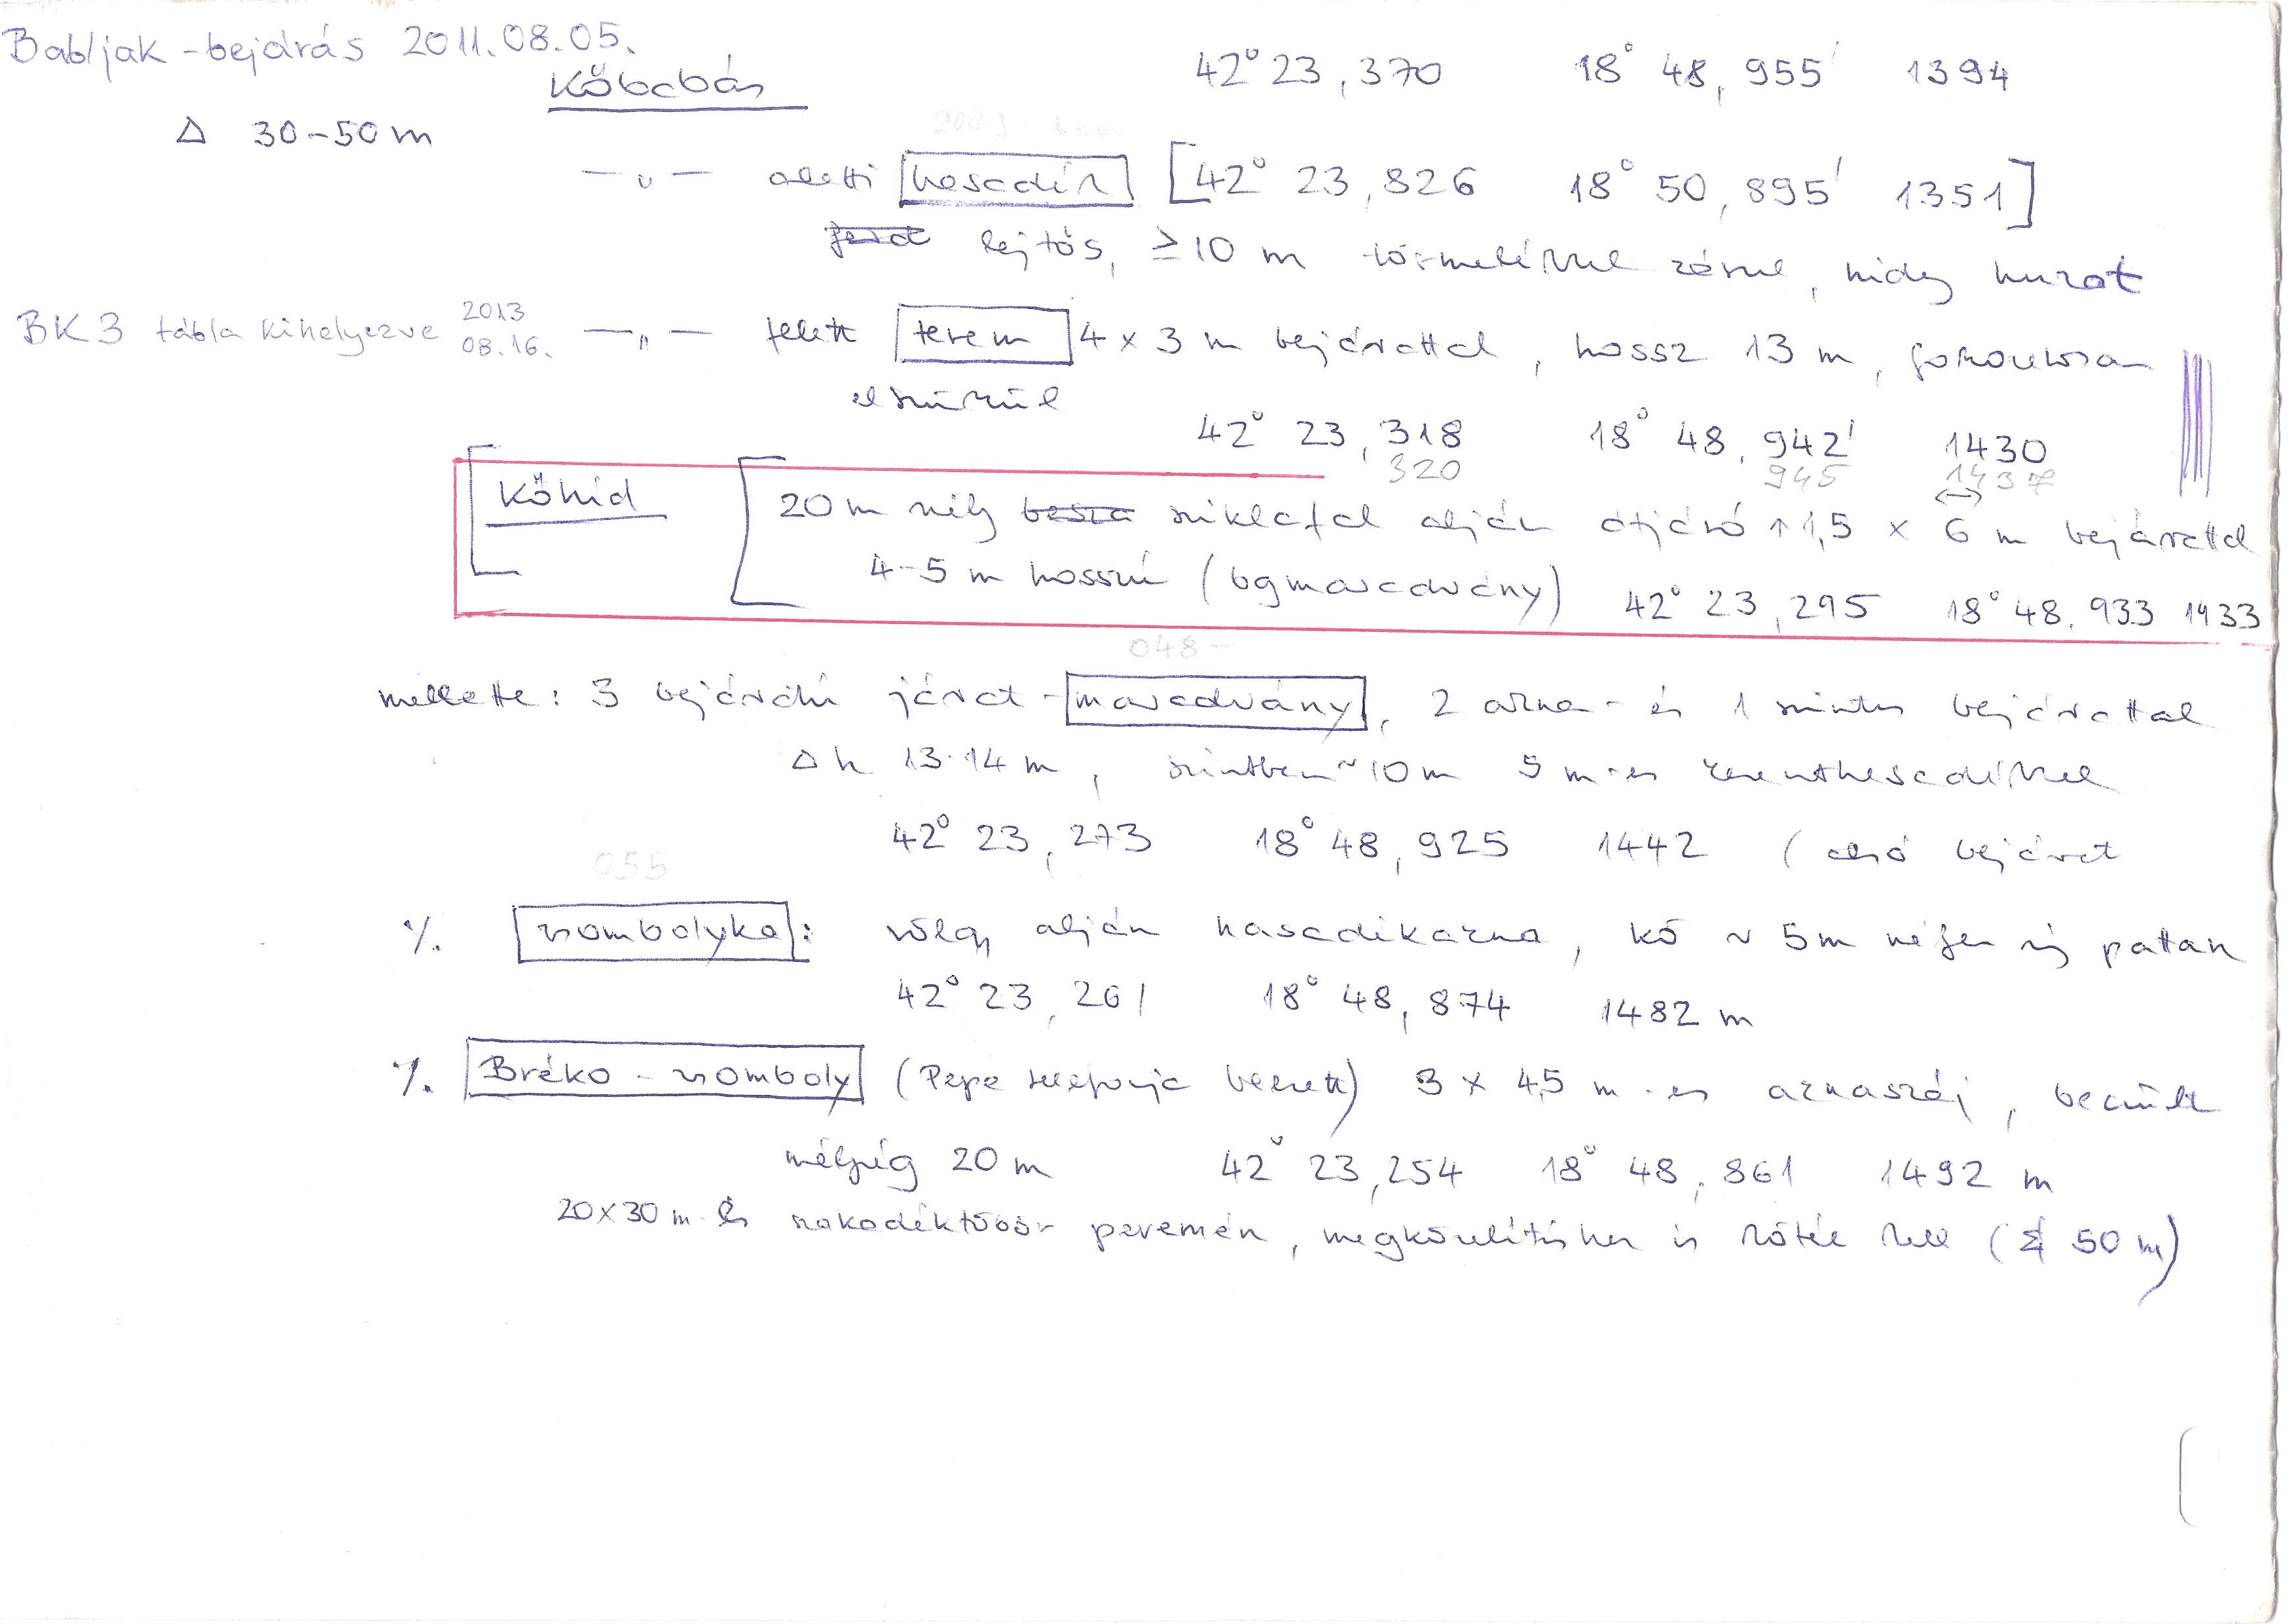 Babljak - bejárás 2011.08.05.
Kőbabás 42° 23,370 18° 48,955' 1394
Δ 30-50 m
—„— alatti hasadék [42° 23,826 18° 50,895' 1351]
ferd lejtős, ≥10 m törmelékkel zárul, hideg huzat
BK3 tábla kihelyezve 2013 08.16. —„— felett terem 4 x 3 m bejárattal, hossz 13 m, fokozatosan
elszűkül
42° 23,318 18° 48,942' 1430
320 945 1437
Kőhíd [20 m mély sziklafal alján átjáró ↑1,5 x 6 m bejárattal
4-5 m hosszú (bgmaradvány) 42° 23,295 18° 48,933 1433
048 -
mellette: 3 bejáratú járat - maradvány, 2 akna- és 1 szintes bejárattal
Δh 13-14 m, szintben ~10 m 5 m-es kereszthasadékkal
42° 23,273 18° 48,925 1442 (alsó bejárat
055
%. zsombolyka: völgy alján hasadékakna, kő ~ 5m mélyen még pattan
42° 23,261 18° 48,874 1482 m
%. Bréko - zsomboly (Pepe telefonja beesett) 3 x 4,5 m-es aknaszáj, becsült
mélység 20 m 42° 23,254 18° 48,861 1492 m
20x30 m-es szakadéktöbör peremén, megközelítéshez is kötél kell (Σ 50 m)